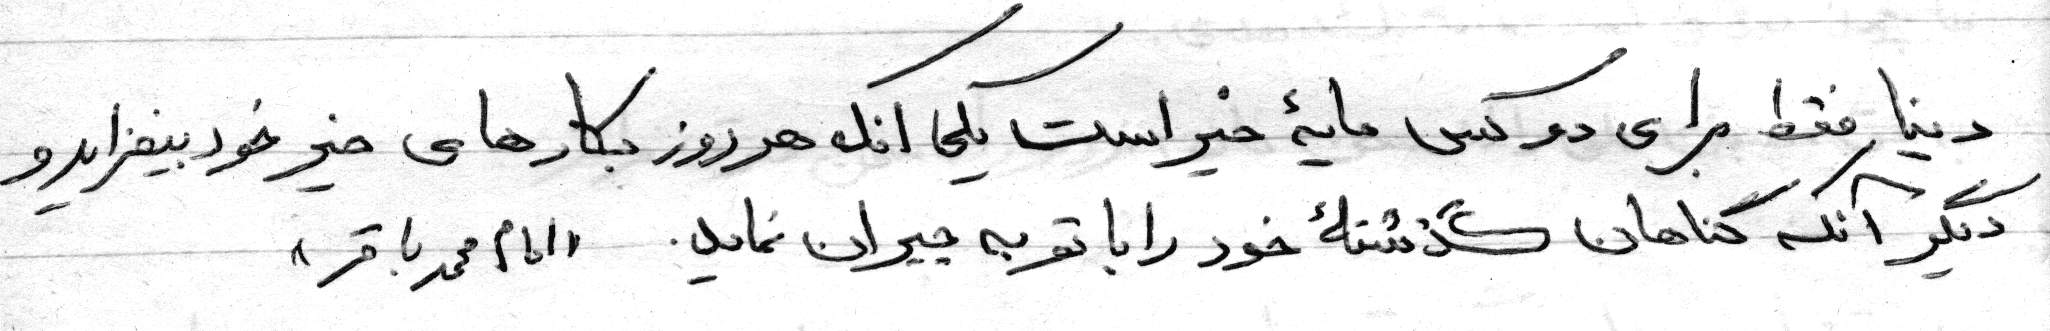 دنیا فقط برای دو کس مایهٔ خیر است یکی انکه هر روز بکارهای خیر خود بیفزاید و
دیگر آنکه گناهان گذشتهٔ خود را با توبه جبران نماید. «امام محمد باقر»